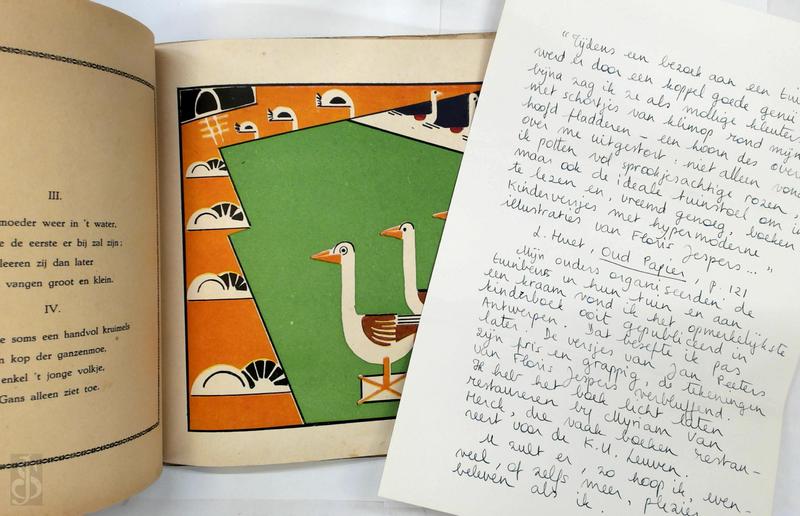 III.
moeder weer in 't water,
e de eerste er bij zal zijn;
leeren zij dan later
vangen groot en klein.
IV.
e soms een handvol kruimels
n kop der ganzenmoe,
enkel 't jonge volkje,
Gans alleen ziet toe.
"Tijdens een bezoek aan een tuin
werd ik door een koppel goede genii
bijna zag ik ze als mollige kleuters
met schortjes van klimop rond mijn
hoofd fladderen – een hoorn des over
over me uitgestort: niet alleen vond
ik potten vol sprookjesachtige rozen,
maar ook de ideale tuinstoel om in
te lezen en, vreemd genoeg, boeken
kinderversjes met hypermoderne
illustraties van Floris Jespers..."
L. Huet, Oud Papier, p. 121
Mijn ouders organiseerden de
tuinbeurs in hun tuin en aan
een kraam vond ik het opmerkelijkste
kinderboek ooit gepubliceerd in
Antwerpen. Dat besefte ik pas
later. De versjes van Jan Peeters
zijn fris en grappig, de tekeningen
van Floris Jespers verbluffend.
Ik heb het boek licht laten
restaureren bij Myriam van
Herck, die vaak boeken restau-
reert voor de K.U. Leuven.
U zult er, zo hoop ik, even-
veel, of zelfs meer, plezier
beleven als ik.